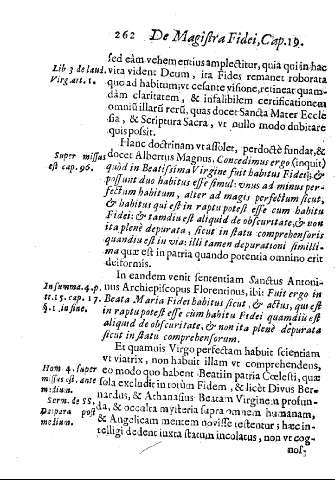 262 De Magistra Fidei, Cap. 19.
sed eam vehementius amplectitur, quia qui in hac
Lib 3 de laud. vita vident Deum, ita Fides remanet roborata
Virg. art. 1. quo ad habitum, vt cesante visione, retineat quam-
dam claritatem, & infalibilem certificationem
omniũ illarũ rerũ, quas docet Sancta Mater Eccle
sia, & Scriptura Sacra, vt nullo modo dubitare
quis possit.
Hanc doctrinam vt assolet, perdoctè fundat, &
Super missus docet Albertus Magnus. Concedimus ergo (inquit)
est cap. 96. quòd in Beatissima Virgine fuit habitus Fidei; &
possunt duo habitus esse simul: vnus ad minus per-
fectum habitum, alter ad magis perfectum sicut,
& habitus qui est in raptu potest esse cum habitu
Fidei: & tamdiu est aliquid de obscuritate, & non
ita plenè depurata, sicut in statu comprehensoris
quandiu est in via: illi tamen depurationi simillì-
ma quæ est in patria quando potentia omnino erit
deiformis.
In eandem venit sententiam Sanctus Antoni-
In summa. 4. p. nus Archiepiscopus Florentinus, ibi: Fuit ergo in
tt. 15. cap. 17. Beata Maria Fidei habitus sicut, & actus, qui est
§. 1. in fine. in raptu potest esse cùm habitu Fidei quamdiu est
aliquid de obscuritate, & non ita plenè depurata
sicut in statu comprehensorum.
Et quamuis Virgo perfectam habuit scientiam
vt viatrix, non habuit illam vt comprehendens,
Hom 4. super eo modo quo habent Beati in patria Cœlesti, quæ
missus est. ante sola excludit in totùm Fidem, & licèt Divus Ber-
medium. nardus, & Athanasius Beatam Virginem profun-
Serm. de SS. da, & occulta mysteria supra omnem humanam,
Deipara post & Angelicam mentem novisse testentur; hæc in-
medium. telligi debent iuxta statum incolatus, non vt cog-
nos-